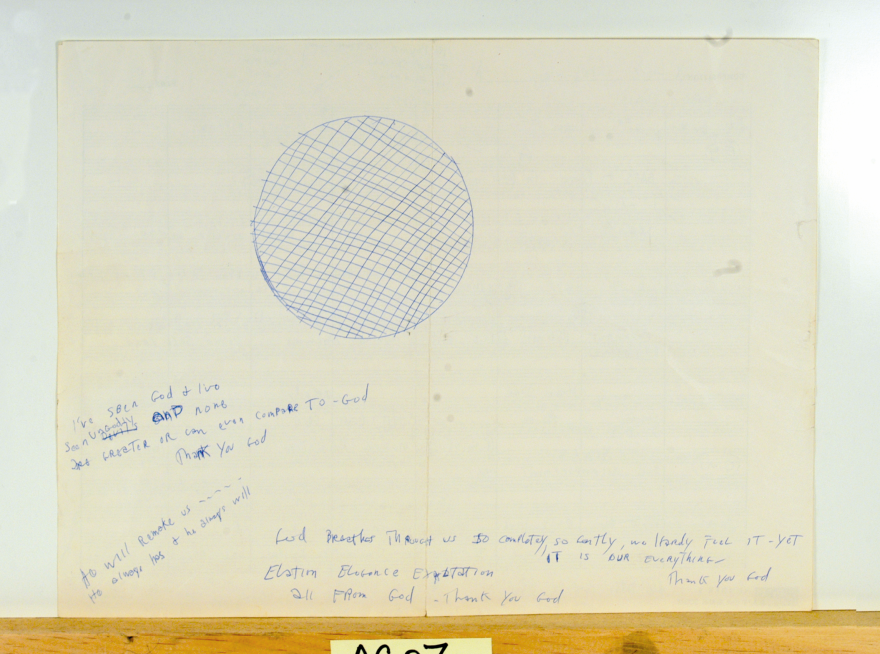 I've SEEN God & I've
seen AND NONE
ARE GREATER OR can even COMPARE TO - GOD
Thank You God
He will Remake us -----
He always has & he always will
God Breathes Through us so completely, so Gently, we Hardly Feel IT - YET
IT IS OUR EVERYTHING
Thank You God
Elation Elegance Exaltation
all From God - Thank You God